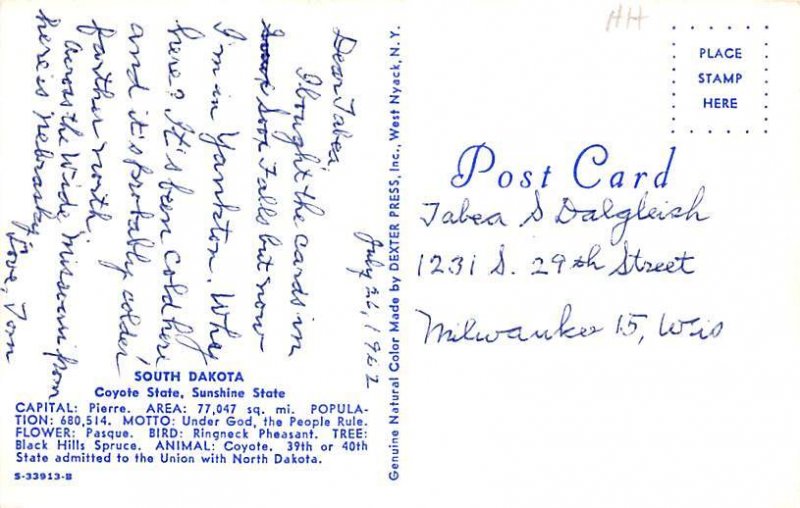 HH
Dear Tabea,
I bought the cards in
Sioux Falls but now
I'm in Yankton. Why
here? It's been cold here
and it's probably colder
farther north.
Across the Wide Missouri from
here is Nebrasky.
Love, Tom
July 26, 1962
SOUTH DAKOTA
Coyote State, Sunshine State
CAPITAL: Pierre. AREA: 77,047 sq. mi. POPULA-
TION: 680,514. MOTTO: Under God, the People Rule.
FLOWER: Pasque. BIRD: Ringneck Pheasant. TREE:
Black Hills Spruce. ANIMAL: Coyote. 39th or 40th
State admitted to the Union with North Dakota.
S-33913-B
Genuine Natural Color Made by DEXTER PRESS, Inc., West Nyack, N.Y.
PLACE
STAMP
HERE
Post Card
Tabea S Dalgleish
1231 S. 29th Street
Milwaukee 15, Wis